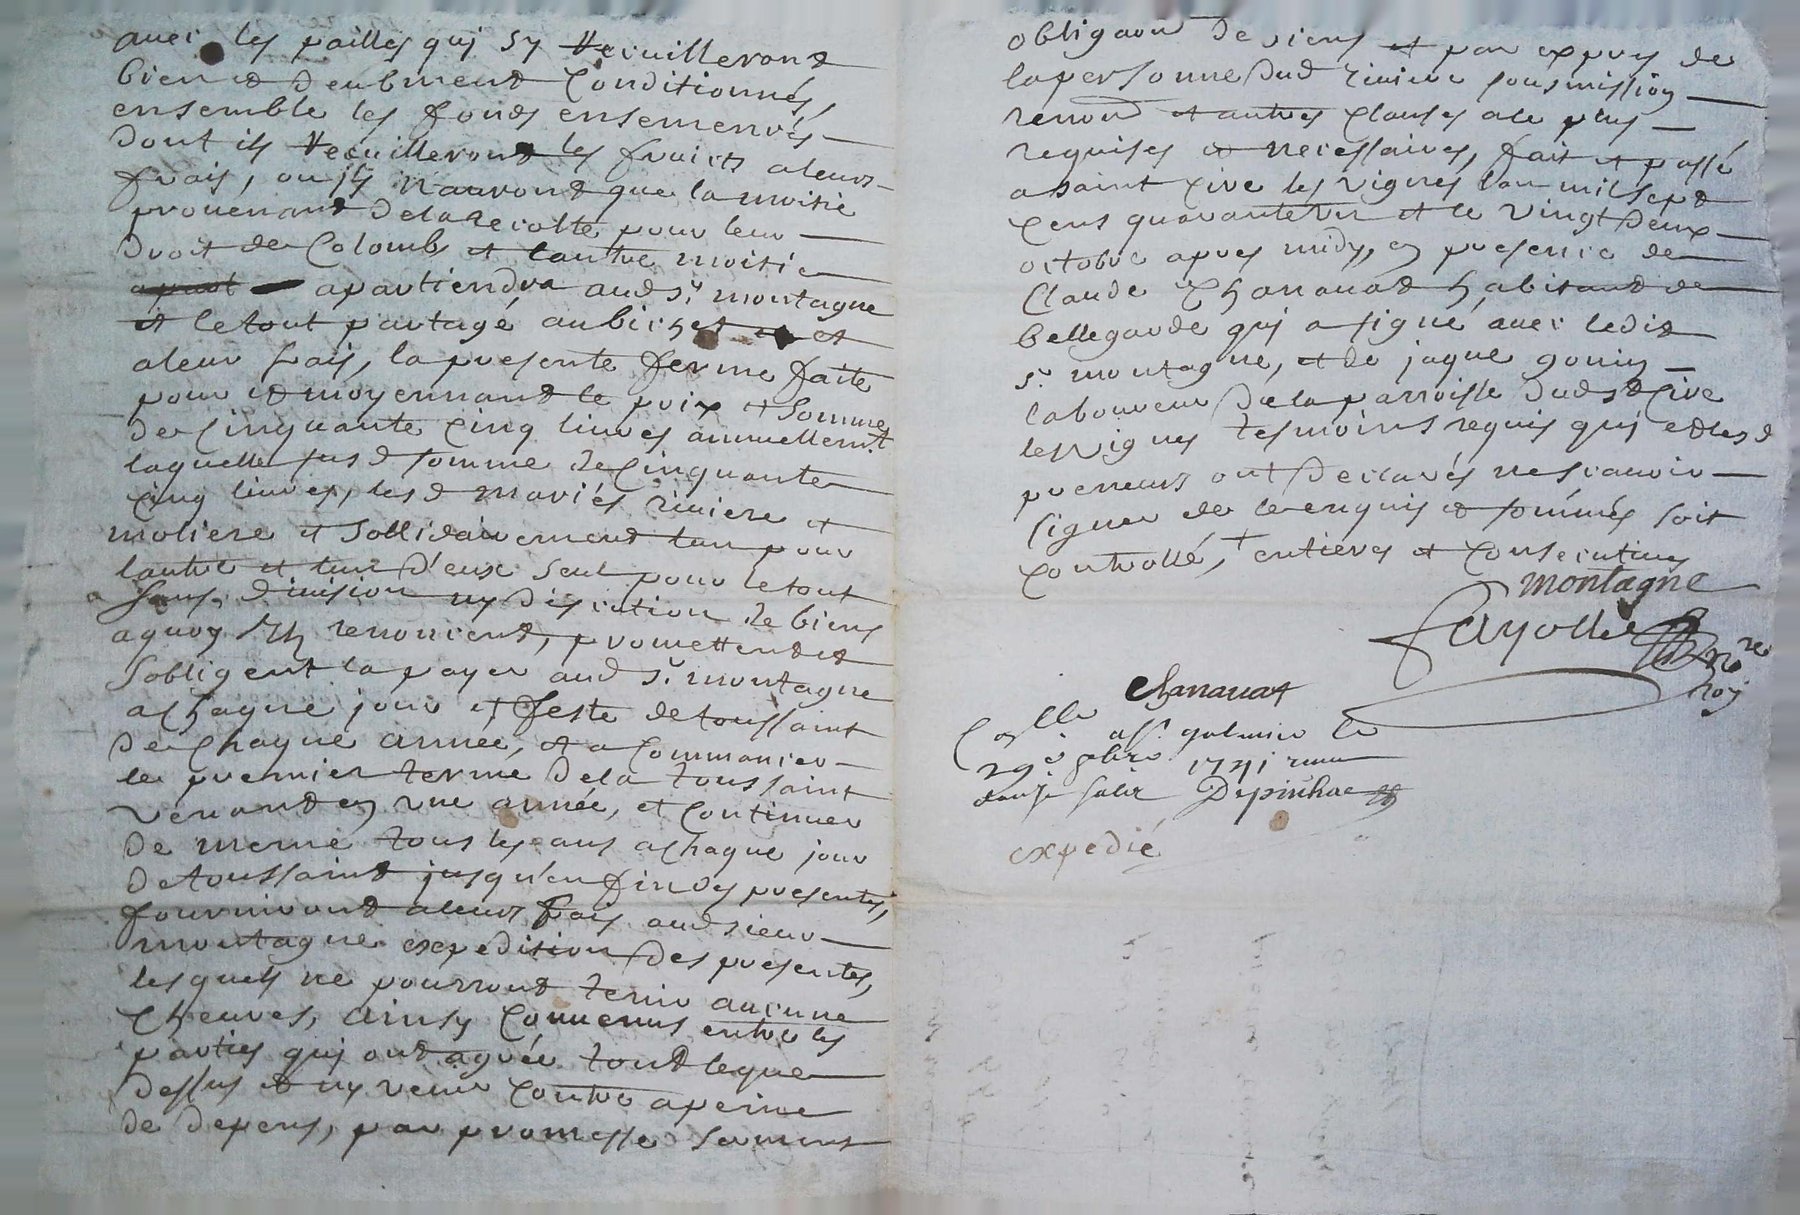 avec les pailles quj sy Recuilleront
bien et deubment Conditionnés,
ensemble les fonds ensemencés
dont ils Recuilleront les fruicts a leurs
frais, ou jls n'auront que la moitié
prouenant dela Recolte pour leur
droit de Colomb et lautre moitié
apartiendra aud sr. montagne
et le tout partagé au bichet et
a leur frais, la presente ferme faite
pour et moyennant le prix et Somme
de Cinquante Cinq liures annuellemt.
laquelle susd somme de Cinquante
Cinq liures, lesd mariés riuiere et
moliere et Sollidairement lun pour
lautre et lun d'eux seul pour le tout
sans diuision ny discution de biens
aquoy Ils renoncent, promettent et
sobligent la payer aud sr. montagne
a chaque jour et feste de toussaint
de Chaque année, et a Commancer
le premier terme dela toussaint
venant en vne année, et Continuer
de meme tous les ans a chaque jour
de toussaint jusqu'en fin des presentes,
fourniront a leurs frais aud sieur
montagne expedition des presentes,
lesquels ne pourront tenir aucune
Cheures, ainsy Conuenus entre les
parties quj ont agrée tout le que
dessus et ny venir Contre a peine
de depens, par promesse serment
obligaon de biens et par expres de
la personne dud riuiere sousmission
renond et autres Clauses ale plus
requises et necessaires, fait et passé
a saint Cire les vignes lan mil sept
Cens quarante vn et le vingt deux
octobre apres midy, en presence de
Claude Chanauat habitant de
bellegarde quj a signé auec ledit
sr. montagne, et de jaque gonin
laboureur de la parroisse dud st Cire
les vignes tesmoins requis quj et lesd
preneurs ont declarés ne scauoir
signer de ce enquis et sommés soit
Controllé, + entieres et Consecutiues
montagne
fayolle nore
roy
Chanauat
Collé a st. galmier le
29e 8bre 1741 reçu
douze sols Depinhac
expedié